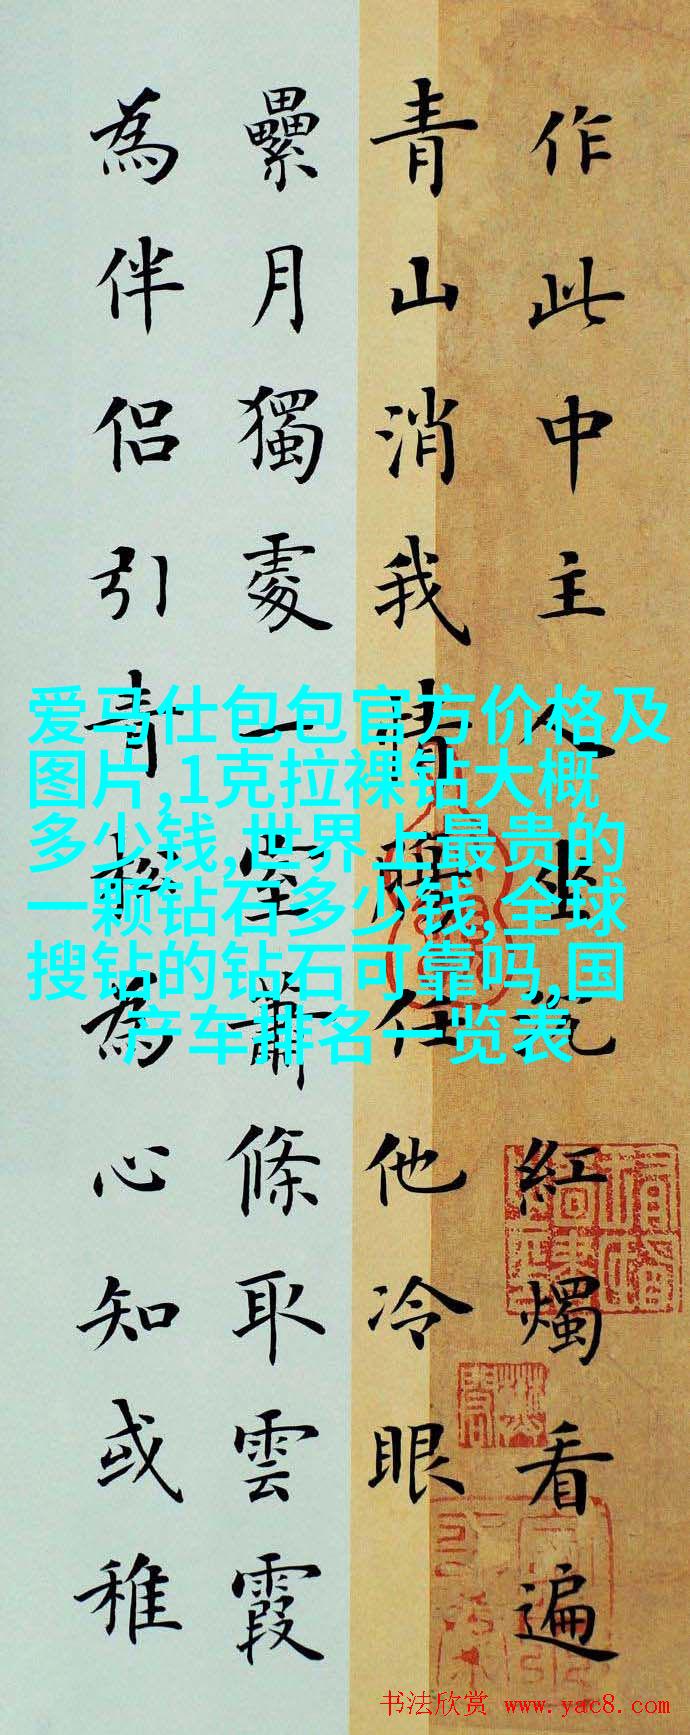 作此中主人坐究紅燭看遍
青山消我情腸任他冷眼
纍月獨處一室蕭條取雲霞
為伴侶引青松為心知或稚
爱马仕包包官方价格及
图片,1克拉裸钻大概
多少钱,世界上最贵的
一颗钻石多少钱,全球
搜钻的钻石可靠吗,国
产车排名一览表
书法欣赏 www.yac8.com